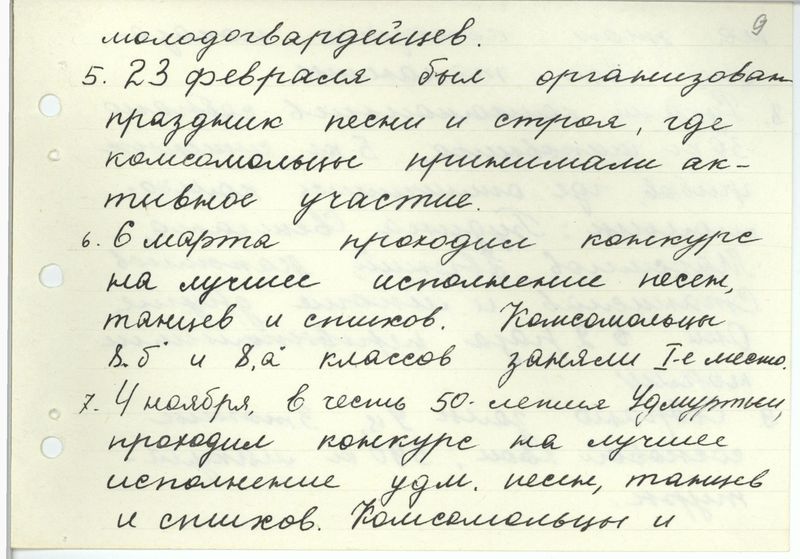 9
молодогвардейцев.
5. 23 февраля был организован
праздник песни и строя, где
комсомольцы принимали ак-
тивное участие.
6. 6 марта проходил конкурс
на лучшее исполнение песен,
танцев и стихов. Комсомольцы
8.б и 8,а классов заняли I-е место.
7. 4 ноября, в честь 50-летия Удмуртии,
проходил конкурс на лучшее
исполнение удм. песен, танцев
и стихов. Комсомольцы и